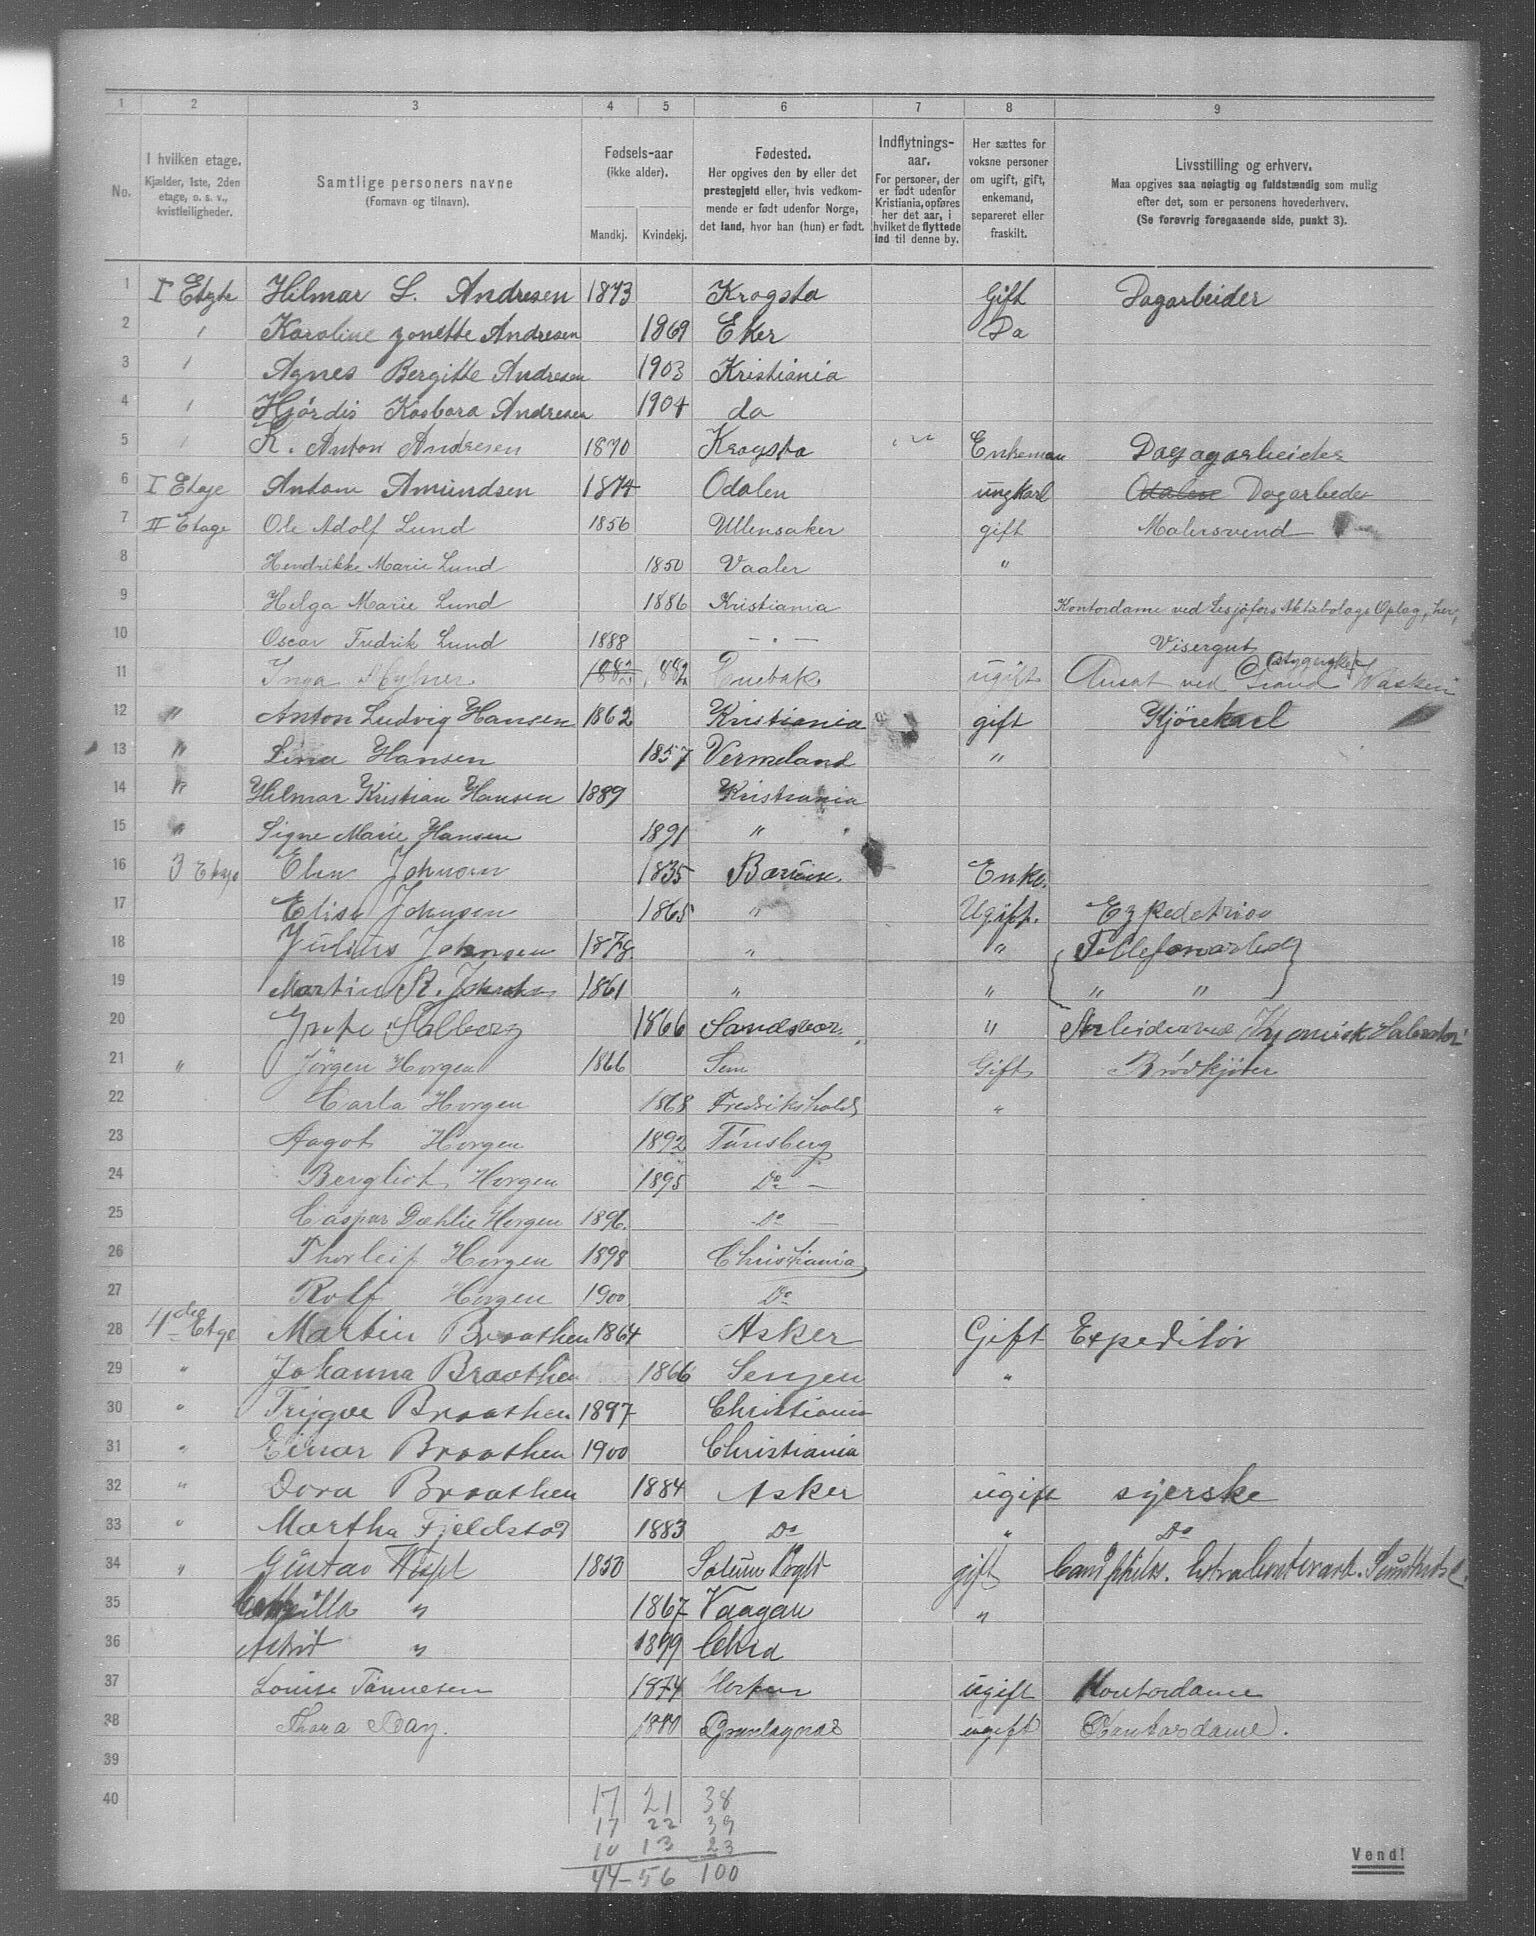 1 2 3 4 5 6 7 8 9
No.
I hvilken etage.
Kjælder, 1ste, 2den
etage, o. s. v.,
kvistleiligheder.
Samtlige personers navne
(Fornavn og tilnavn).
Fødsels-aar
(ikke alder).
Mandkj. Kvindekj.
Fødested.
Her opgives den by eller det
prestegjeld eller, hvis vedkom-
mende er født udenfor Norge,
det land, hvor han (hun) er født.
Indflytnings-
aar.
For personer, der
er født udenfor
Kristiania, opføres
her det aar, i
hvilket de flyttede
ind til denne by.
Her sættes for
voksne personer
om ugift, gift,
enkemand,
separeret eller
fraskilt.
Livsstilling og erhverv.
Maa opgives saa nøiagtig og fuldstændig som mulig
efter det, som er personens hovederhverv.
(Se forøvrig foregaaende side, punkt 3).
1 I Etage Hilmar L. Andresen 1873 Krogsta Gift Dagarbeider
2 " Karoline Andresen 1869 Eker Do
3 " Agnes Bergitte Andresen 1903 Kristiania
4 " Hjørdis Andresen 1904 do
5 " K. Anton Andresen 1870 Krogsta Enkeman Dagagarbeider
6 I Etage Antom Amundsen 1874 Odalen ungkarl Odalen Dagarbeder
7 II Etage Ole Adolf Lund 1856 Ullensaker gift Malersvend
8 Hendrikke Marie Lund 1850 Vaaler "
9 Helga Marie Lund 1886 Kristiania Kontordame ved Lesjöfors Aktiebolags Oplag, her,
10 Oscar Fredrik Lund 1888 — " — Visergut
11 Inga 1882 Enebak ugift Ansat ved Grand
12 " Anton Ludvig Hansen 1862 Kristiania gift Kjørekarl
13 " Lina Hansen 1857 Vermeland "
14 " Hilmar Kristian Hansen 1889 Kristiania
15 " Signe Marie Hansen 1891 "
16 3 Etage Elen Johnsen 1835 Bærum Enke.
17 Elise Johnsen 1865 " Ugift.
18 Julius Johnsen 1878 " " Tellefonarbeid
19 Martin R. Johnsen 1861 " " " "
20 Solberg 1866 "
21 " Jörgen Horgen 1866 Sem Gift Brödkjører
22 Carla Horgen 1868 Fredrikshald "
23 Aagot Horgen 1892 Tönsberg
24 Bergliot Horgen 1895 Do —
25 Caspar Dæhlie Horgen 1896. Do —
26 Thorleif Horgen 1898 Christiania
27 Rolf Horgen 1900 Do
28 4de Etge Martin Braathen 1864 Asker Gift Expeditör
29 " Johanna Braathen 1866 "
30 " Trygve Braathen 1897 Christiania
31 " Einar Braathen 1900 Christiania
32 " Dora Braathen 1884 Asker ugift syerske
33 " Martha Fjeldstad 1883 Do " Do
34 " Gustav 1850 gift
35 " 1867 Vaagan "
36 Astrid " 1899 Chra
37 Louise Tönnesen 1874 ugift Kontordame
38 Thora Day. 1880 ugift Kontordame.
39
40
17 21 38
17 22 39
10 13 23
44 - 56 100
Vend!